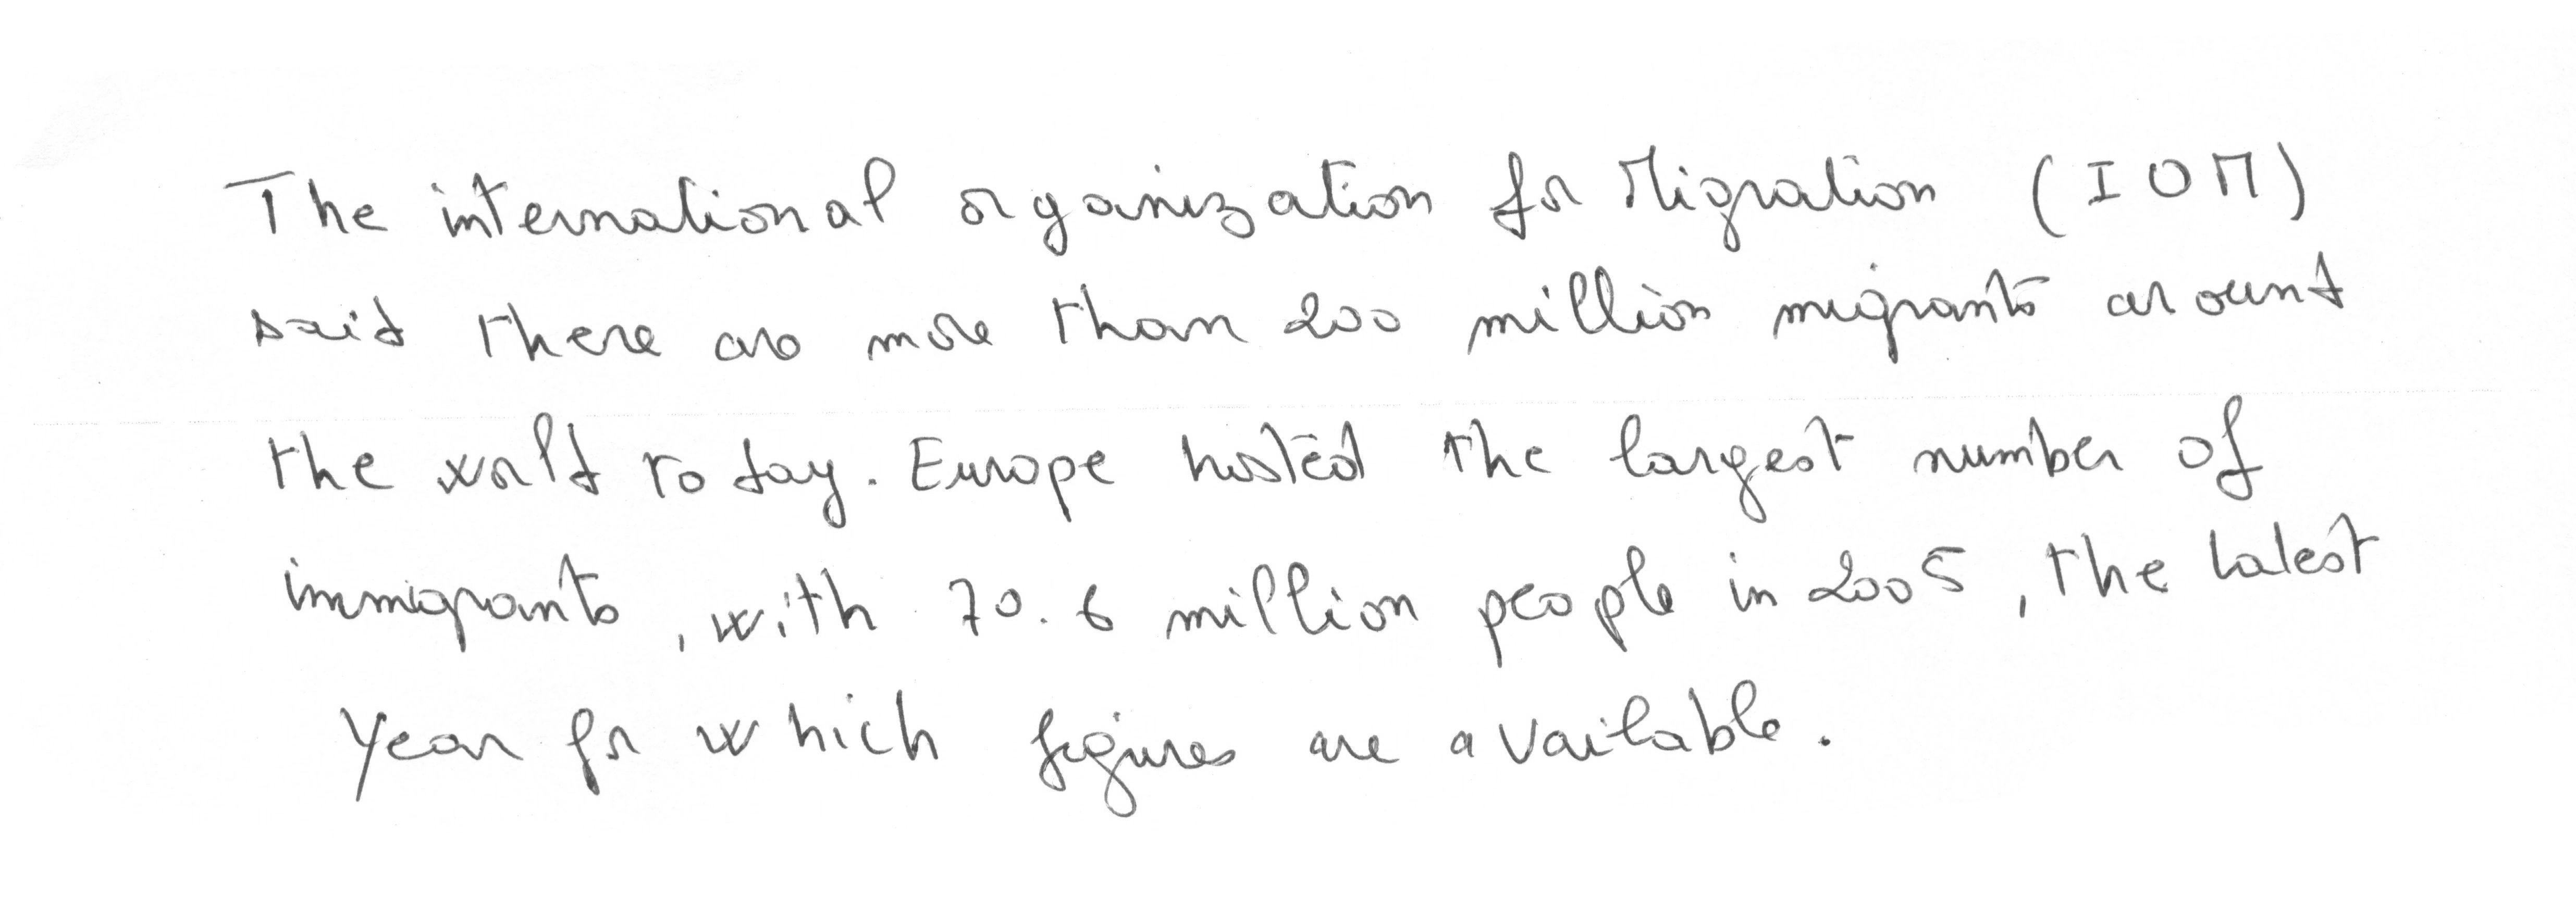 The international organization for Migration (IOM)
said there are more than 200 million migrants around
the world today. Europe hosted the largest number of
immigrants, with 70.6 million people in 2005, the latest
Year for which figures are available.